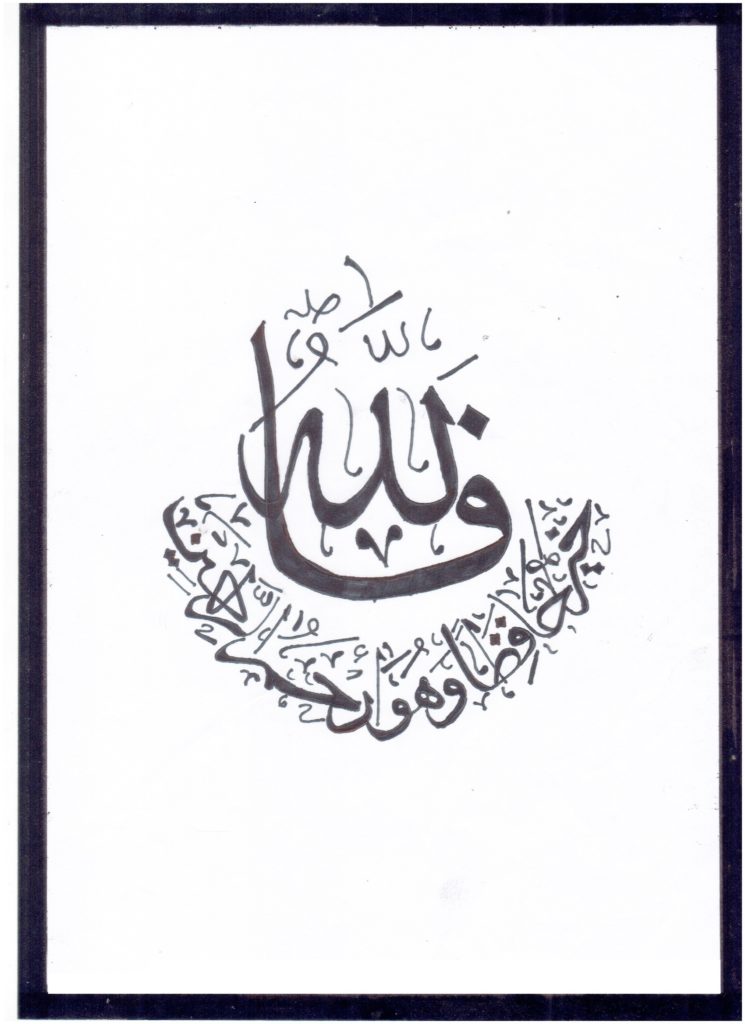 فَاللَّهُ
خَيْرٌ حَافِظًا وَهُوَ أَرْحَمُ الرَّاحِمِينَ